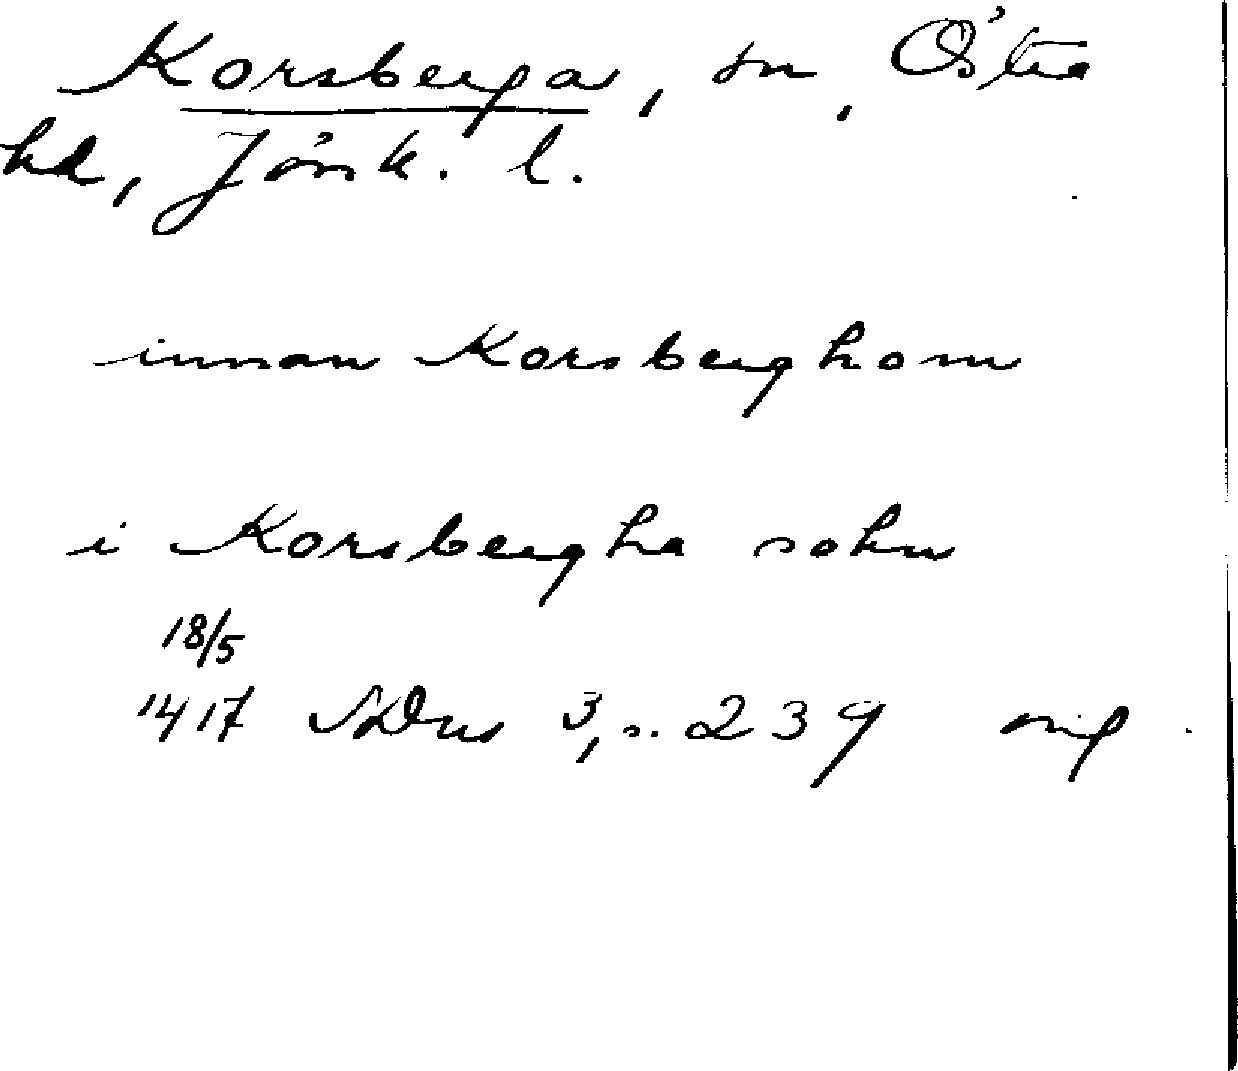 Korsberga, sn, Östra
hd, Jönk. l.
innan Korsberghom
i Korsbergha sokn
18/5
1417 SDns 3, s. 239 orig.